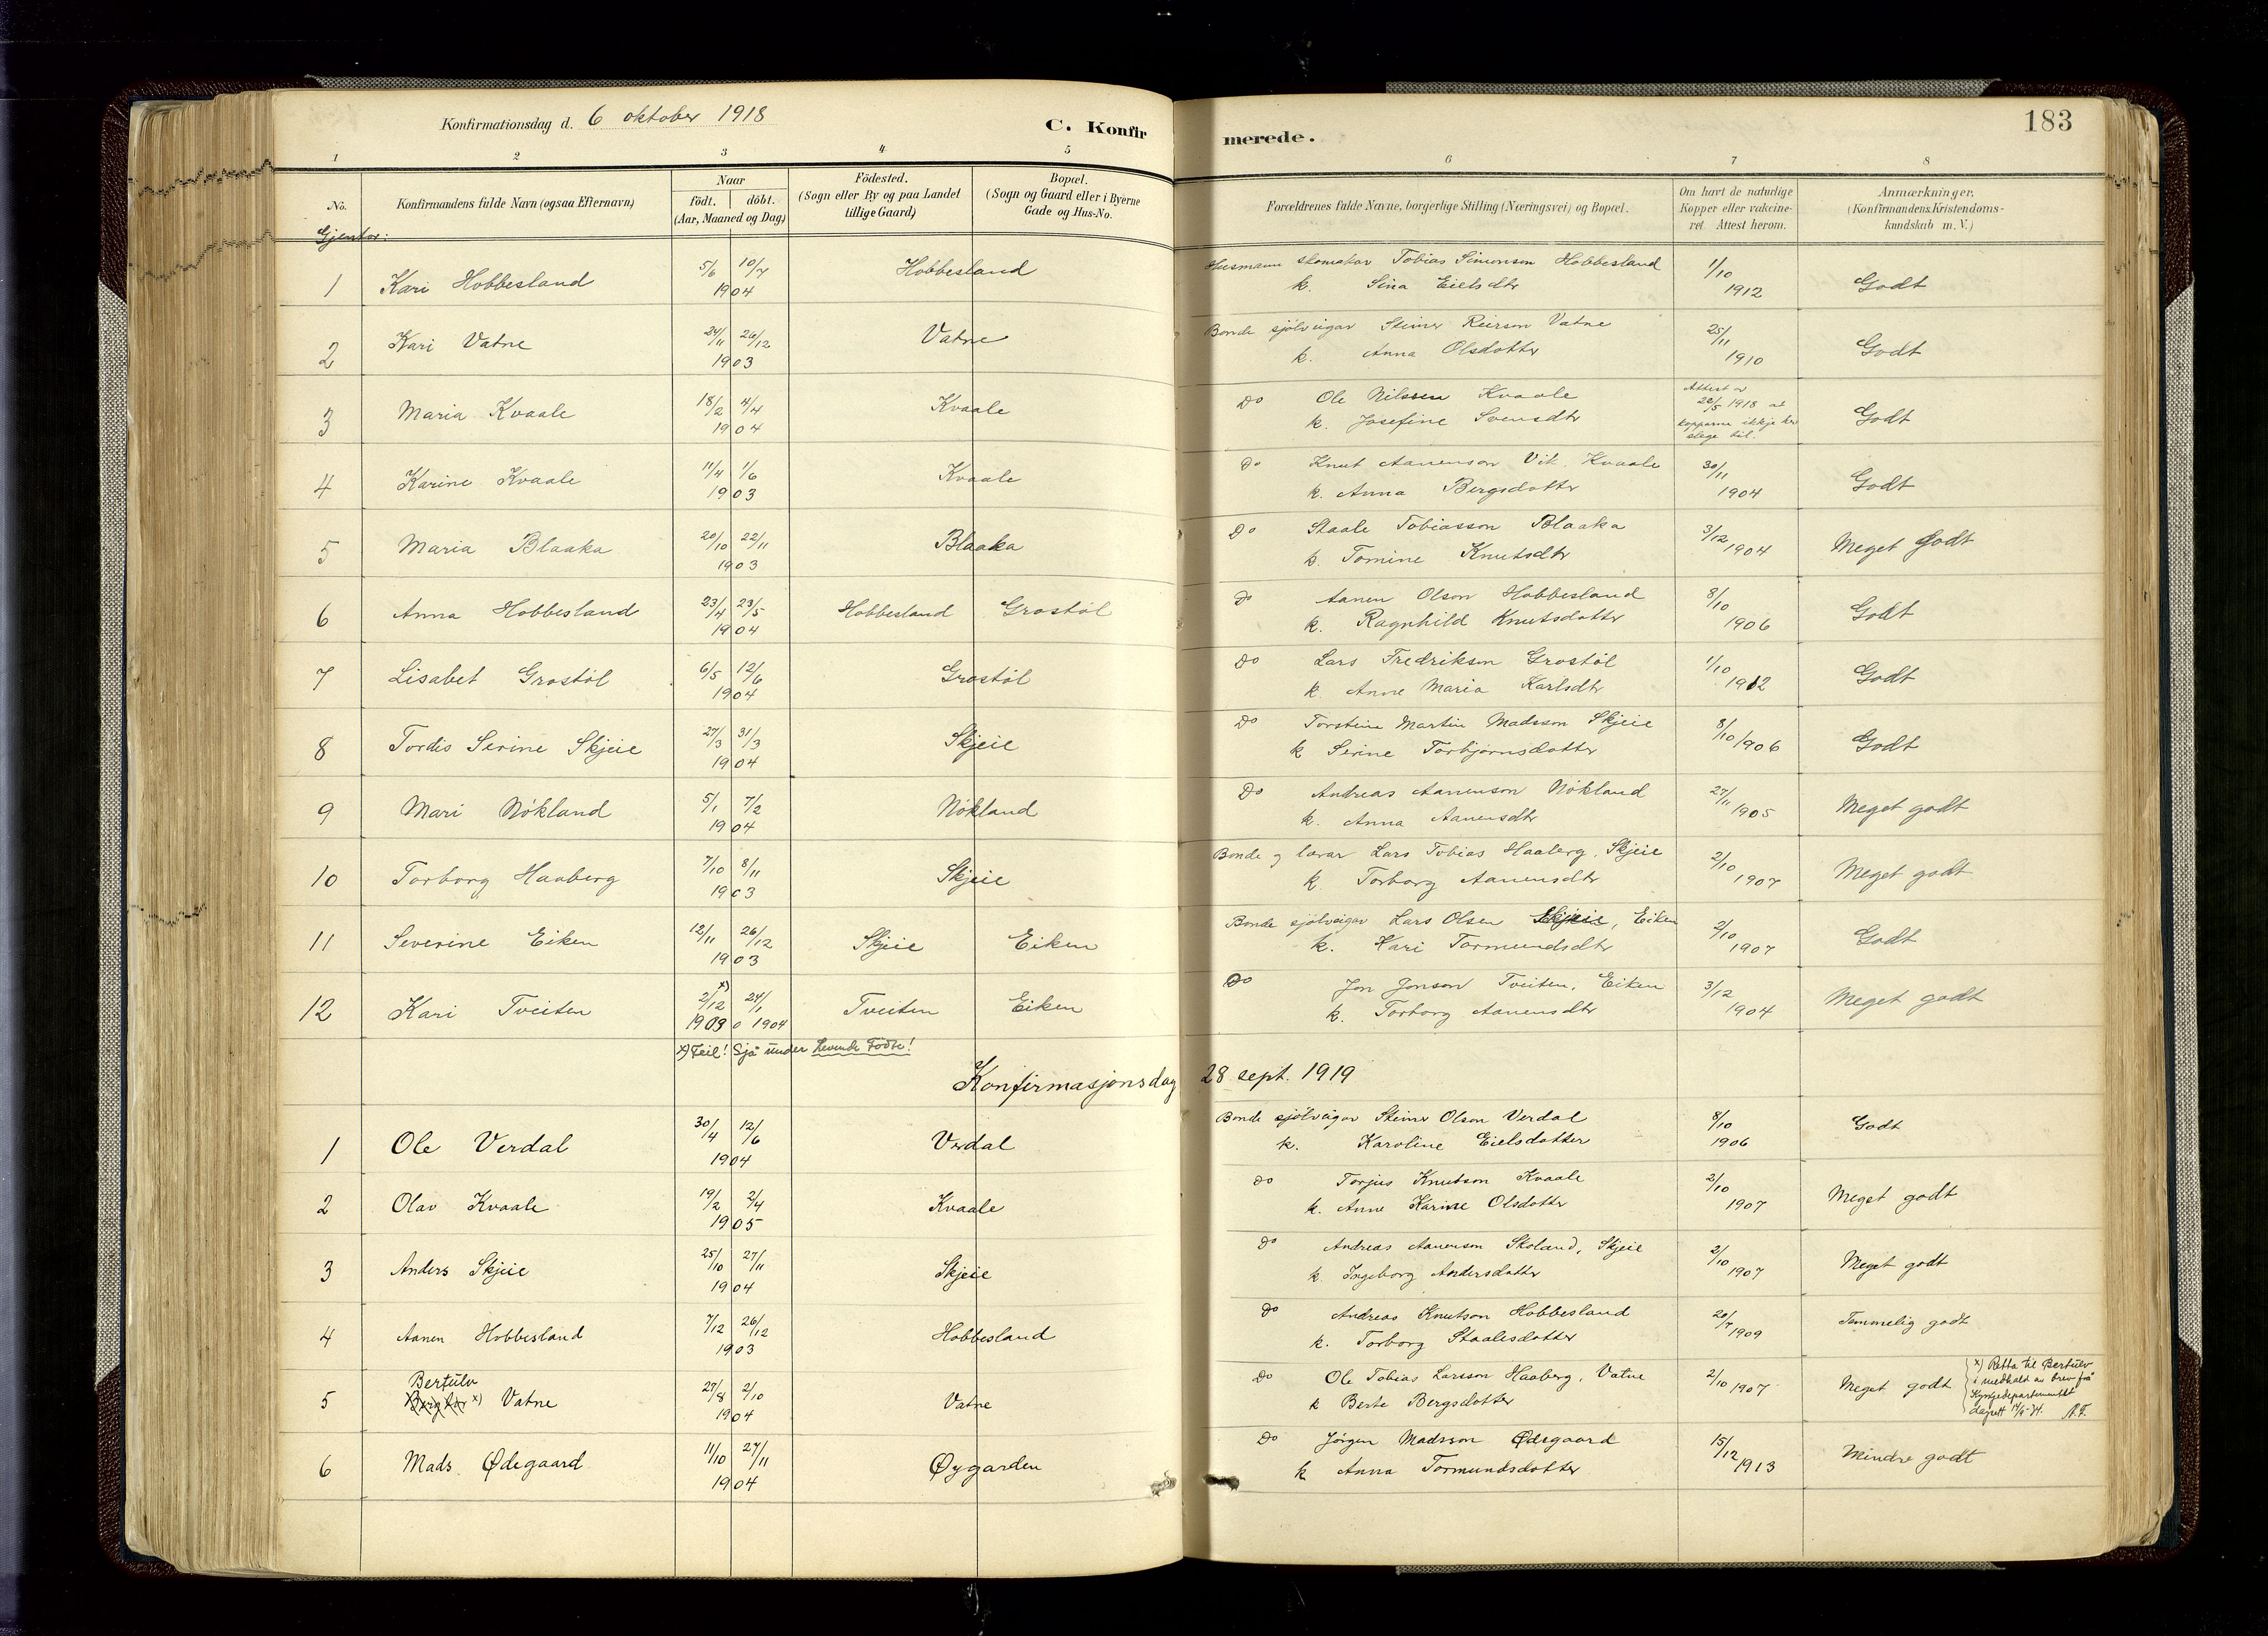 Konfirmationsdag d. 6 oktober 1918
C. Konfir merede.
183
1 2 3 4 5 6 7 8
No.
Konfirmandens fulde Navn (ogsaa Efternavn)
Naar
födt. döbt.
(Aar, Maaned og Dag)
Födested.
(Sogn eller By og paa Landet
tillige Gaard)
Bopæl.
(Sogn og Gaard eller i Byerne
Gade og Hus-No.
Forældrenes fulde Navne, borgerlige Stilling (Næringsvei) og Bopæl.
Om havt de naturlige
Kopper eller vakcine-
ret. Attest herom.
Anmærkninger.
(Konfirmandens Kristendoms-
kundskab m. V.)
Gjentor:
1 Kari Hobbesland 5/6 10/7 1904 Hobbesland Husmann skomakar Tobias Simonson Hobbesland
k. Sina Eielsdtr 1/10 1912 Godt
2 Kari Vatne 24/11 26/12 1903 Vatne Bonde sjölveigar Steinar Reierson Vatne
k. Anna Olsdotter 25/11 1910 Godt
3 Maria Kvaale 18/2 4/4 1904 Kvaale Do Ole Nilssen Kvaale
k. Josefine Svensdtr Attest av 28/5 1918 at kopparne ikkje har slege til. Godt
4 Karine Kvaale 11/4 1/6 1903 Kvaale Do Knut Aanenson Vit. Kvaale
k. Anna Bergsdotter 30/11 1904 Godt
5 Maria Blaaka 20/10 22/11 1903 Blaaka Do Staale Tobiasson Blaaka
k. Tomine Knutsdtr 3/12 1904 Meget Godt
6 Anna Hobbesland 23/4 23/5 1904 Hobbesland Grostöl Do Aanen Olson Hobbesland
k. Ragnhild Knutsdotter 8/10 1906 Godt
7 Lisabet Grostöl 6/5 12/6 1904 Grostöl Do Lars Fredrikson Grostöl
k. Anne Maria Karlsdtr 1/10 1912 Godt
8 Tordis Serine Skjeie 27/3 31/3 1904 Skjeie Do Torstein Martin Madsson Skjeie
k Serine Torbjörnsdotter 8/10 1906 Godt
9 Mari Nökland 5/1 7/2 1904 Nökland Do Andreas Aanenson Nökland
k. Anna Aanensdtr 27/11 1905 Meget godt
10 Torborg Haaberg 7/10 8/11 1903 Skjeie Bonde og lærar Lars Tobias Haaberg, Skjeie
k. Torborg Aanensdtr 2/10 1907 Meget godt
11 Severine Eiken 12/11 26/12 1903 Skjeie Eiken Bonde sjölveigar Lars Olsen Skjeie, Eiken
k. Kari Tormundsdtr 2/10 1907 Godt
12 Kari Tveiten 2/12 x) 24/1 1903 o 1904 Tveiten Eiken Do Jon Jonson Tveiten, Eiken
k. Torborg Aanensdtr 3/12 1904 Meget godt
x) Feil! Sjå under Levende Fødte!
Konfirmasjonsdag 28 sept. 1919
1 Ole Verdal 30/4 12/6 1904 Verdal Bonde sjölveigar Steinar Olson Verdal
k. Karoline Eielsdotter 8/10 1906 Godt
2 Olav Kvaale 19/2 2/4 1905 Kvaale Do Torjus Knutson Kvaale
k. Anne Karine Olsdotter 2/10 1907 Meget godt
3 Anders Skjeie 25/10 27/11 1904 Skjeie Do Andreas Aanenson Skoland, Skjeie
k. Ingeborg Andersdotter 2/10 1907 Meget godt
4 Aanen Hobbesland 7/12 26/12 1903 Hobbesland Do Andreas Knutson Hobbesland
k. Torborg Staalesdotter 20/7 1909 Temmelig godt
Bertulv
5 x) Vatne 27/8 2/10 1904 Vatne Do Ole Tobias Larsson Haaberg, Vatne
k Berte Bergsdotter 2/10 1907 Meget godt
x) Retta til Bertulv
i medhald av brev frå
Kyrkjedepartementet
6 Mads Ødegaard 11/10 27/11 1904 Øygarden Do Jörgen Madsson Ødegaard
k Anna Tormundsdotter 15/12 1913 Mindre godt